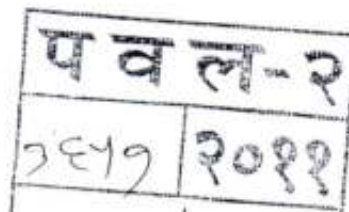 प व ल-२
७६५७ २०११